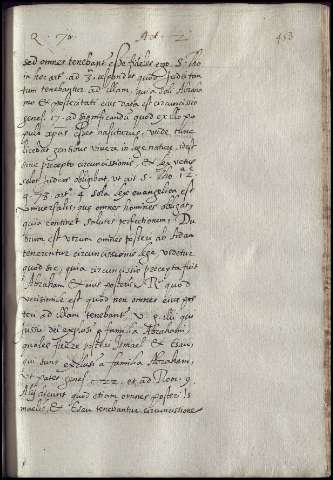 Q. 70. Art. 2. 453
sed omnes tenebant esse fideles ergo. S. Tho
in hoc art. ad 3. respondet quod Judei tan
tum tenebantur ad illam, quia soli Abraha
mo et posteritati eius data est circumcisio
genes. 17. ad significandum quod ex illo po
pulo christus esset nasciturus, unde tunc
licebat gentibus vivere in lege nature, idest
sine precepto circumcisionis, et lex vetus
solos Judeos obligabat, ut ait S. Tho 1. 2.
q. 98. art. 4 sola lex evangelica est
universalis, que omnes homines obligat,
quia continet salutis perfectionem. Du
bium est utrum omnes posteri ab Adam
tenerentur circumcisionis lege videtur
quod sic, quia circumcisio precepta fuit
Abraham et eius posteris. R. quod
verisimile est quod non omnes eius pos
teri ad illam tenebantur v. g. illi qui
jussu dei egressi e familia Abraham
quales fuere posteri Ismael et Esau,
qui sunt exclusi a familia Abraham,
ut patet genes. et ad Rom. 9.
Alij dicunt quod etiam omnes posteri Is
maelis, et Esau tenebantur circumcisione